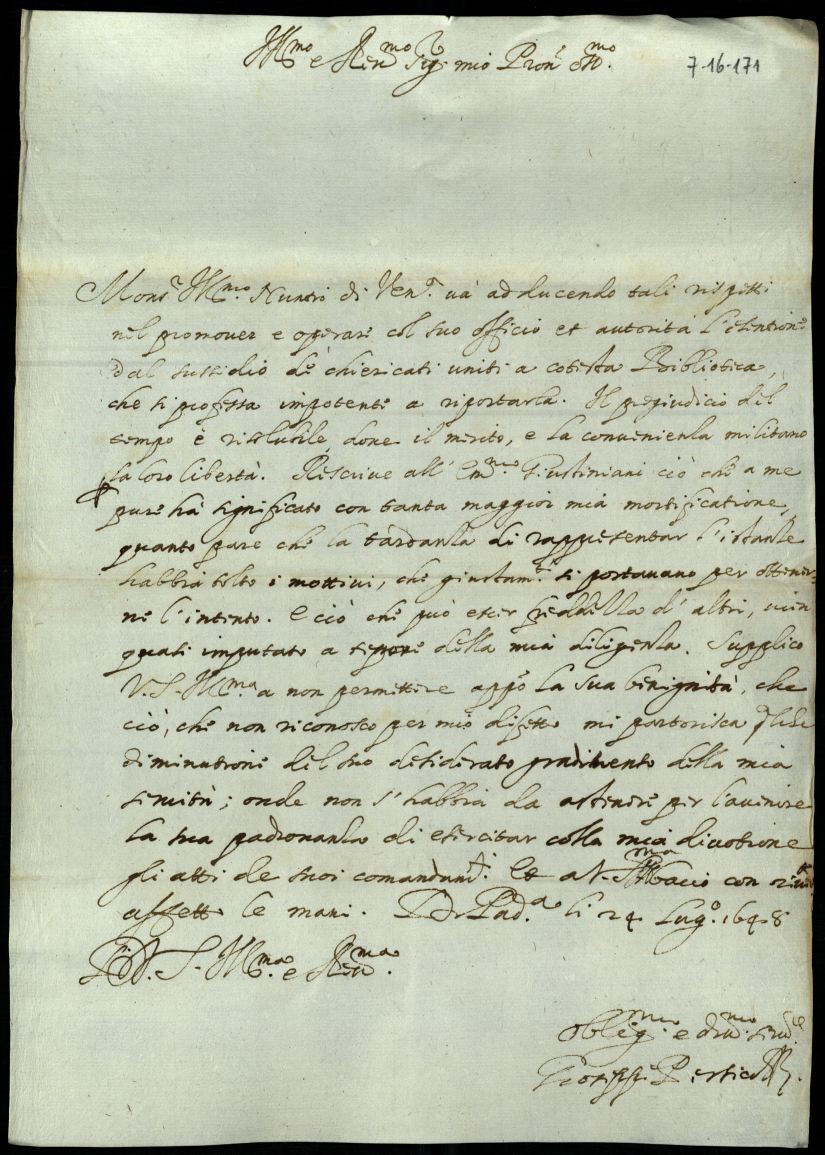 Ill.mo e Rev.mo Sig.r mio Pron Col.mo
7-16-171
Mons.r Ill.mo Nuntio di Ven.a và adducendo tali rispetti
nel promover e operare col suo officio et autorità l'esentione
dal sussidio de chiericati uniti a cotesta Bibliotica,
che si professa impotente a riportarla. Il pregiudicio del
tempo è risolubile, dove il merito, e la convenienza militano
la loro libertà. Rescrive all' Em.mo Giustiniani ciò che a me
pure hà significato con tanta maggior mia mortificatione,
quanto pare che la tardanza di rappresentar l'istanze
habbia tolto i mottivi, che giustam.te si portavano per ottener
ne l'intento. E ciò che può esser freddezza d'altri, vien
quasi imputato a tepore della mia diligenza. Supplico
V.S. Ill.ma a non permettere app.o la sua benignità, che
ciò, che non riconosco per mio difetto mi partorisca
diminutione del suo desiderato gradimento della mia
servitù; onde non s'habbia da astenere per l'avenire
la sua padronanza di esercitar colla mia divotione
gli atti de suoi comandam.ti. Et a V.S. Ill.ma bacio con
affetto le mani. Di Pad.a li 24 Lug.o 1648
Di V.S. Ill.ma e Rev.ma
Oblig.mo e dev.mo
Gioseppe